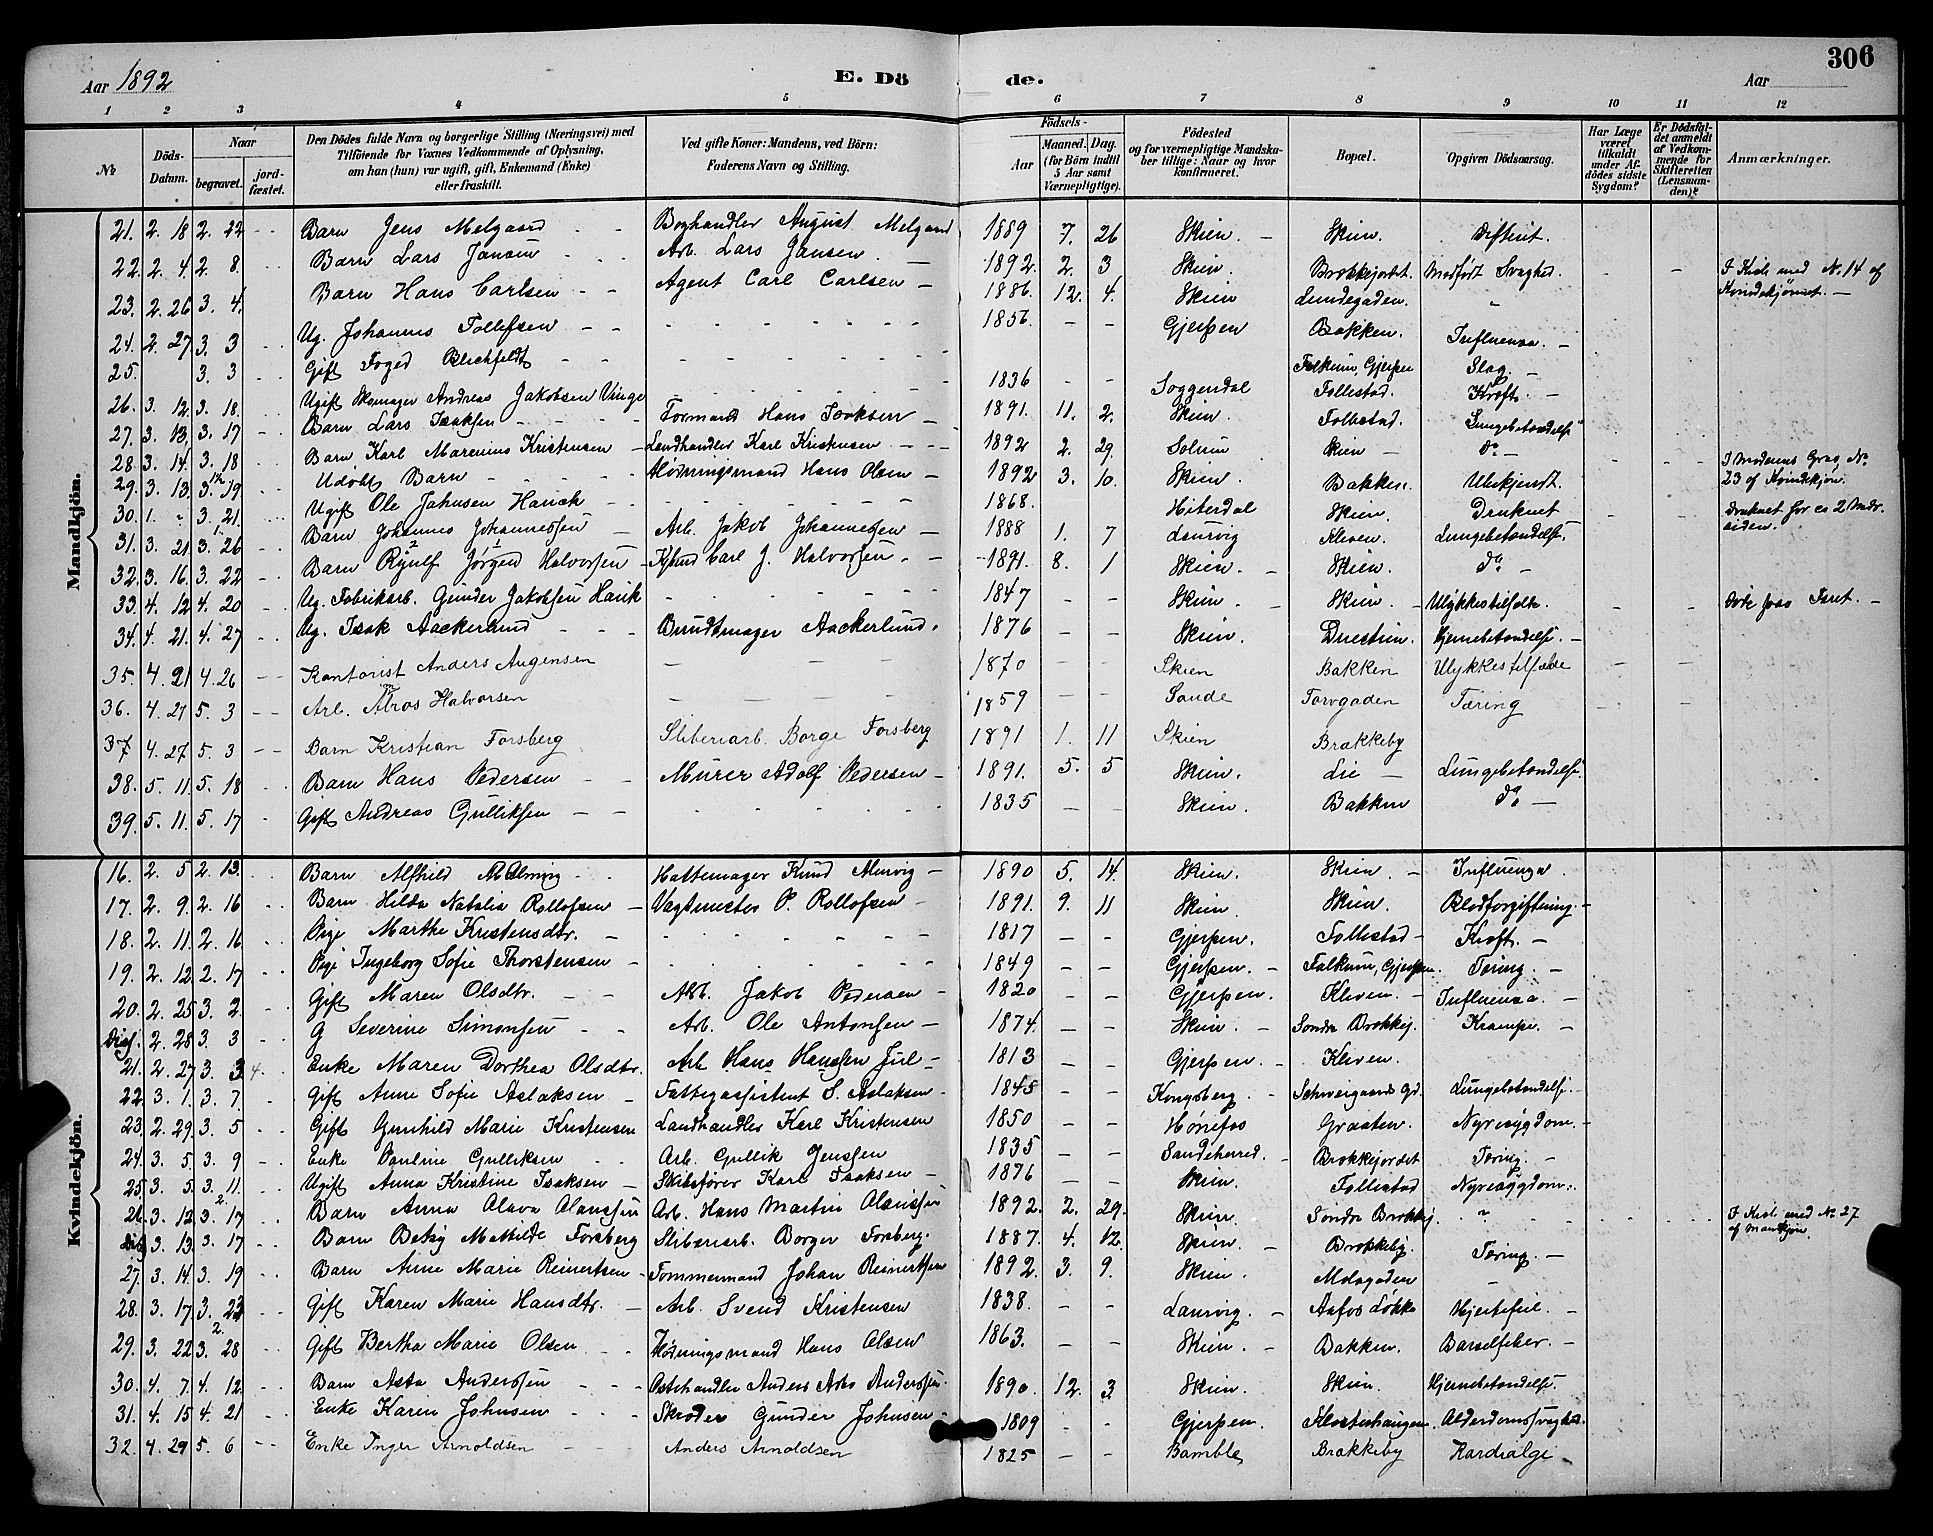 Aar 1892
E. Dö
de.
Aar
306
1 2 3 4 5 6 7 8 9 10 11 12
No
Döds-Datum.
Naar
begravet.
jord-fæstet.
Den Dödes fulde Navn og borgerlige Stilling (Næringsvei) med Tilföiende for Voxnes Vedkommende af Oplysning, om han (hun) var ugift, gift, Enkemand (Enke) eller fraskilt.
Ved gifte Koner: Mandens, ved Börn: Faderens Navn og Stilling.
Födsels-
Aar
Maaned. Dag.
(for Börn indtil 5 Aar samt Værnepligtige).
Födested og for værnepligtige Mandskaber tillige: Naar og hvor konfirmeret.
Bopæl.
Opgiven Dödsaarsag.
Har Læge været tilkaldt under Afdödes sidste Sygdom?
Er Dödsfaldet anmeldt af Vedkommende for Skifteretten (Lensmanden)?
Anmærkninger.
Mandkjön.
21. 2. 18 2. 22 Barn Jens Melgaard Boghandler August Melgaard 1889 7. 26 Skien. Skien. Difterit.
22. 2. 4. 2. 8. Barn Lars Jansen Arb. Lars Jansen. 1892. 2. 3 Skien. Brekkejordet. Medfødt Svaghed. I Kiste med No. 14 af Kvindekjønnet.
23. 2. 26 3. 4. Barn Hans Carlsen Agent Carl Carlsen 1886. 12. 4. Skien Lundegaden. "
24. 2. 27 3. 3 Ug. Johannes Tollefsen 1856. Gjerpen Bakken. Influenza.
25. 3. 3 Gift Foged Blichfeldt Falkum, Gjerpen Slag.
26. 3. 12. 3. 18. Ugift Skomager Andreas Jakobsen Vinge 1836 Soggendal Follestad. Kræft.
27. 3. 13. 3. 17 Barn Lars Isaksen Formand Hans Isaksen 1891. 11. 2. Skien. Follestad. Lungebetændelse
28. 3. 14. 3. 18 Barn Karl Marenius Kristensen Landhandler Karl Kristensen 1892 2. 29. Solum Skien do
29. 3. 13. 3. 19 Udøbt Barn Hodningsmand Hans Olsen 1892 3. 10. Skien. Bakken. Ubekjendt. I Moderens Grav, No. 23 af Kvindekjøn.
30. 1. " 3. 21. Ugift Ole Jahnsen Hanak 1868. Hiterdal Skien. Druknet Druknet for ca 2 Mdr. siden.
31. 3. 21 3. 26 Barn Johannes Johannessen Arb. Jakob Johannesen 1888 1. 7 Laurvig Kleven. Lungebetændelse.
32. 3. 16. 3. 22 Barn Rynlf Jörgen Halvorsen Kjbmd Carl J. Halvorsen. 1891. 8. 1 Skien. Skien. do
33. 4. 12 4. 20 Ug. Fabrikarb. Gunder Jakobsen Hauk 1847 Skien. Skien. Ulykkestilfælde.
34. 4. 21. 4. 27 Ug. Isak Aackerlund Bundtmager Aackerlund. 1876 Skien. Duestien. Hjernebetændelse.
35. 4. 21 4. 26 Kontorist Anders Augensen 1870 Skien Bakken Ulykkestilfælde
36. 4. 27 5. 3 Arb. Abros Halvorsen 1859 Sande Torvgaden Tæring
37 4. 27 5. 3 Barn Kristian Forsberg Sliberiarb. Borge Forsberg 1891 1. 11 Skien Brækkeby
38. 5. 11. 5. 18 Barn Hans Pedersen Murer Adolf Pedersen 1891. 5. 5 Skien. Lie Lungebetændelse.
39. 5. 11. 5. 17 Gift Andreas Gulliksen 1835 Skien. Bakken do
Kvindekjön.
16. 2. 5 2. 13. Barn Alfhild Hattemager Knud 1890 5. 14. Skien. Skien. Influenza.
17. 2. 9. 2. 16 Barn Hilda Natalia Rollofsen Vagtmester P. Rollofsen 1891. 9. 11 Skien. Skien. Blodforgiftning.
18. 2. 11. 2. 16 Pige Marthe Kristensdtr. 1817 Gjerpen. Follestad Kræft.
19. 2. 12. 2. 17 Pige Ingeborg Sofie Thorstensen 1849 Gjerpen. Falkum, Gjerpen. Tæring.
20. 2. 25 3. 2. Gift Maren Olsdtr. Arb. Jakob Pedersen 1820 Gjerpen. Kleven. Influenza.
2. 28 3. 3 G Severine Simonsen Arb. Ole Antonsen 1874. Skien. Søndre Brekkej. Krampe.
21. 2. 27 3. 3 4. Enke Maren Dorthea Olsdtr. Arb Hans Hanssen Jul 1813 Gjerpen Kleven.
22. 3. 1. 3. 7. Gift Anne Sofie Aslaksen Fattigassistent S. Aslaksen 1845 Kongsberg. Schweigaards Gd. Lungebetændelse.
23. 2. 29. 3. 5 Gift Gunhild Marie Kristensen Landhandler Karl Kristensen 1850 Hønefos Graaten. Nyresygdom.
24. 3. 5 3. 9 Enke Pauline Gulliksen Arb. Gullik Jenssen 1835 Sandeherred. Brekkejordet Tæring.
25. 3. 5. 3. 11. Ugift Anna Kristine Isaksen Skibsfører Karl Isaksen 1876 Skien. Follestad Nyresygdom.
26. 3. 12 3. 17 Barn Anna Olava Olaussen Arb. Hans Martin Olaussen 1892. 2. 29. Skien. Søndre Brekkej. " I Kiste med No. 27 af Mandkjøn.
3. 13. 3. 17 Barn Betsy Mathilde Forsberg Sliberiarb. Borger Forsberg. 1887. 4. 12. Skien. Brekkeby. Tæring.
27. 3. 14 3. 19 Barn Anne Marie Reinertsen Tømmermand Johan Reinertsen 1892. 3. 9. Skien. Molagaden
28. 3. 17 3. 23 Gift Karen Marie Hansdtr. Arb. Svend Kristensen 1838. Laurvig. Aafos Løkke Hjertefeil.
29. 3. 22 3. 28 Gift Bertha Marie Olsen Hodningsmand Hans Olsen 1863. Skien. Bakken. Barselfeber.
30. 4. 7 4. 12 Barn Asta Anderssen Ostehandler Anders Anderssen. 1890. 12. 3 Skien. Skien. Hjernebetændelse.
31. 4. 15 4. 21 Enke Karen Johnsen Skræder Gunder Johnsen 1809 Gjerpen. Klosterhaugen. Alderdomssvaghed.
32. 4. 29 5. 6 Enke Inger Arnoldsen Anders Arnoldsen 1825 Bamble, Brækkeby Kardialgi